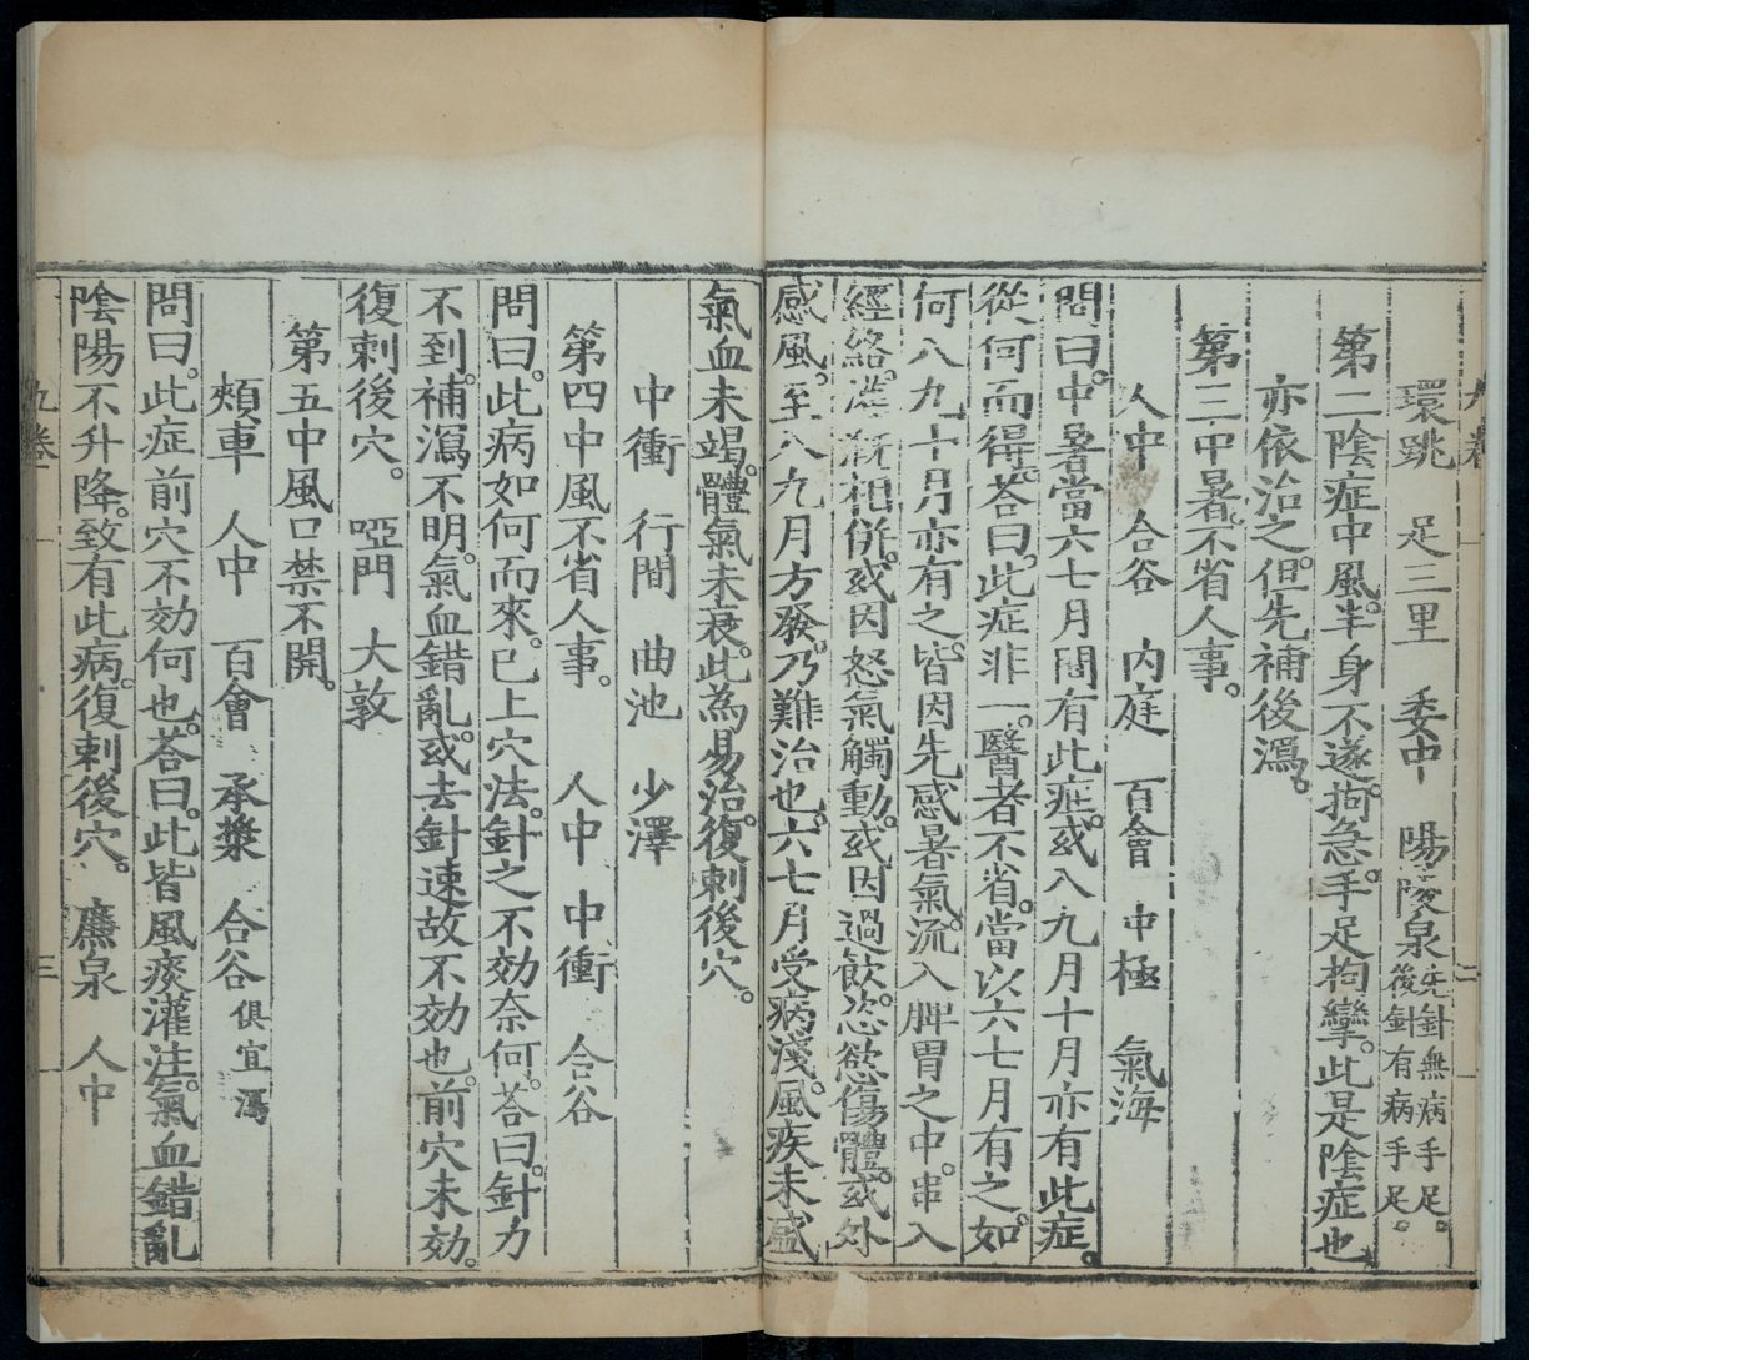 九卷
二
環跳　足三里　委中　陽陵泉先針無病手足。後針有病手足。
第二陰症中風。半身不遂。拘急。手足拘攣。此是陰症也
亦依治之。但先補後瀉。
第三中暑。不省人事。
人中　合谷　内庭　百會　中極　氣海
問曰。中暑當六七月間有此症。或八九月十月亦有此症。
從何而得。荅曰。此症非一。醫者不省。當以六七月有之。如
何八九十月亦有之。皆因先感暑氣。流入脾胃之中。串入
經絡。灌漑相併。或因怒氣觸動。或因過飲。恣慾傷體。或外
感風。至八九月方發。乃難治也。六七月受病淺。風疾未盛
氣血未竭。體氣未衰。此為易治。復刺後穴。
中衝　行間　曲池　少澤
第四中風不省人事。　人中　中衝　合谷
問曰。此病如何而來。已上穴法。針之不効奈何。荅曰。針力
不到。補瀉不明。氣血錯亂。或去針速故不効也。前穴未効。
復刺後穴。　啞門　大敦
第五中風口禁不開。
頰車　人中　百會　承漿　合谷俱宜瀉
問曰。此症前穴不効何也。荅曰。此皆風痰灌注。氣血錯亂
陰陽不升降。致有此病。復刺後穴。　廉泉　人中
九卷
三